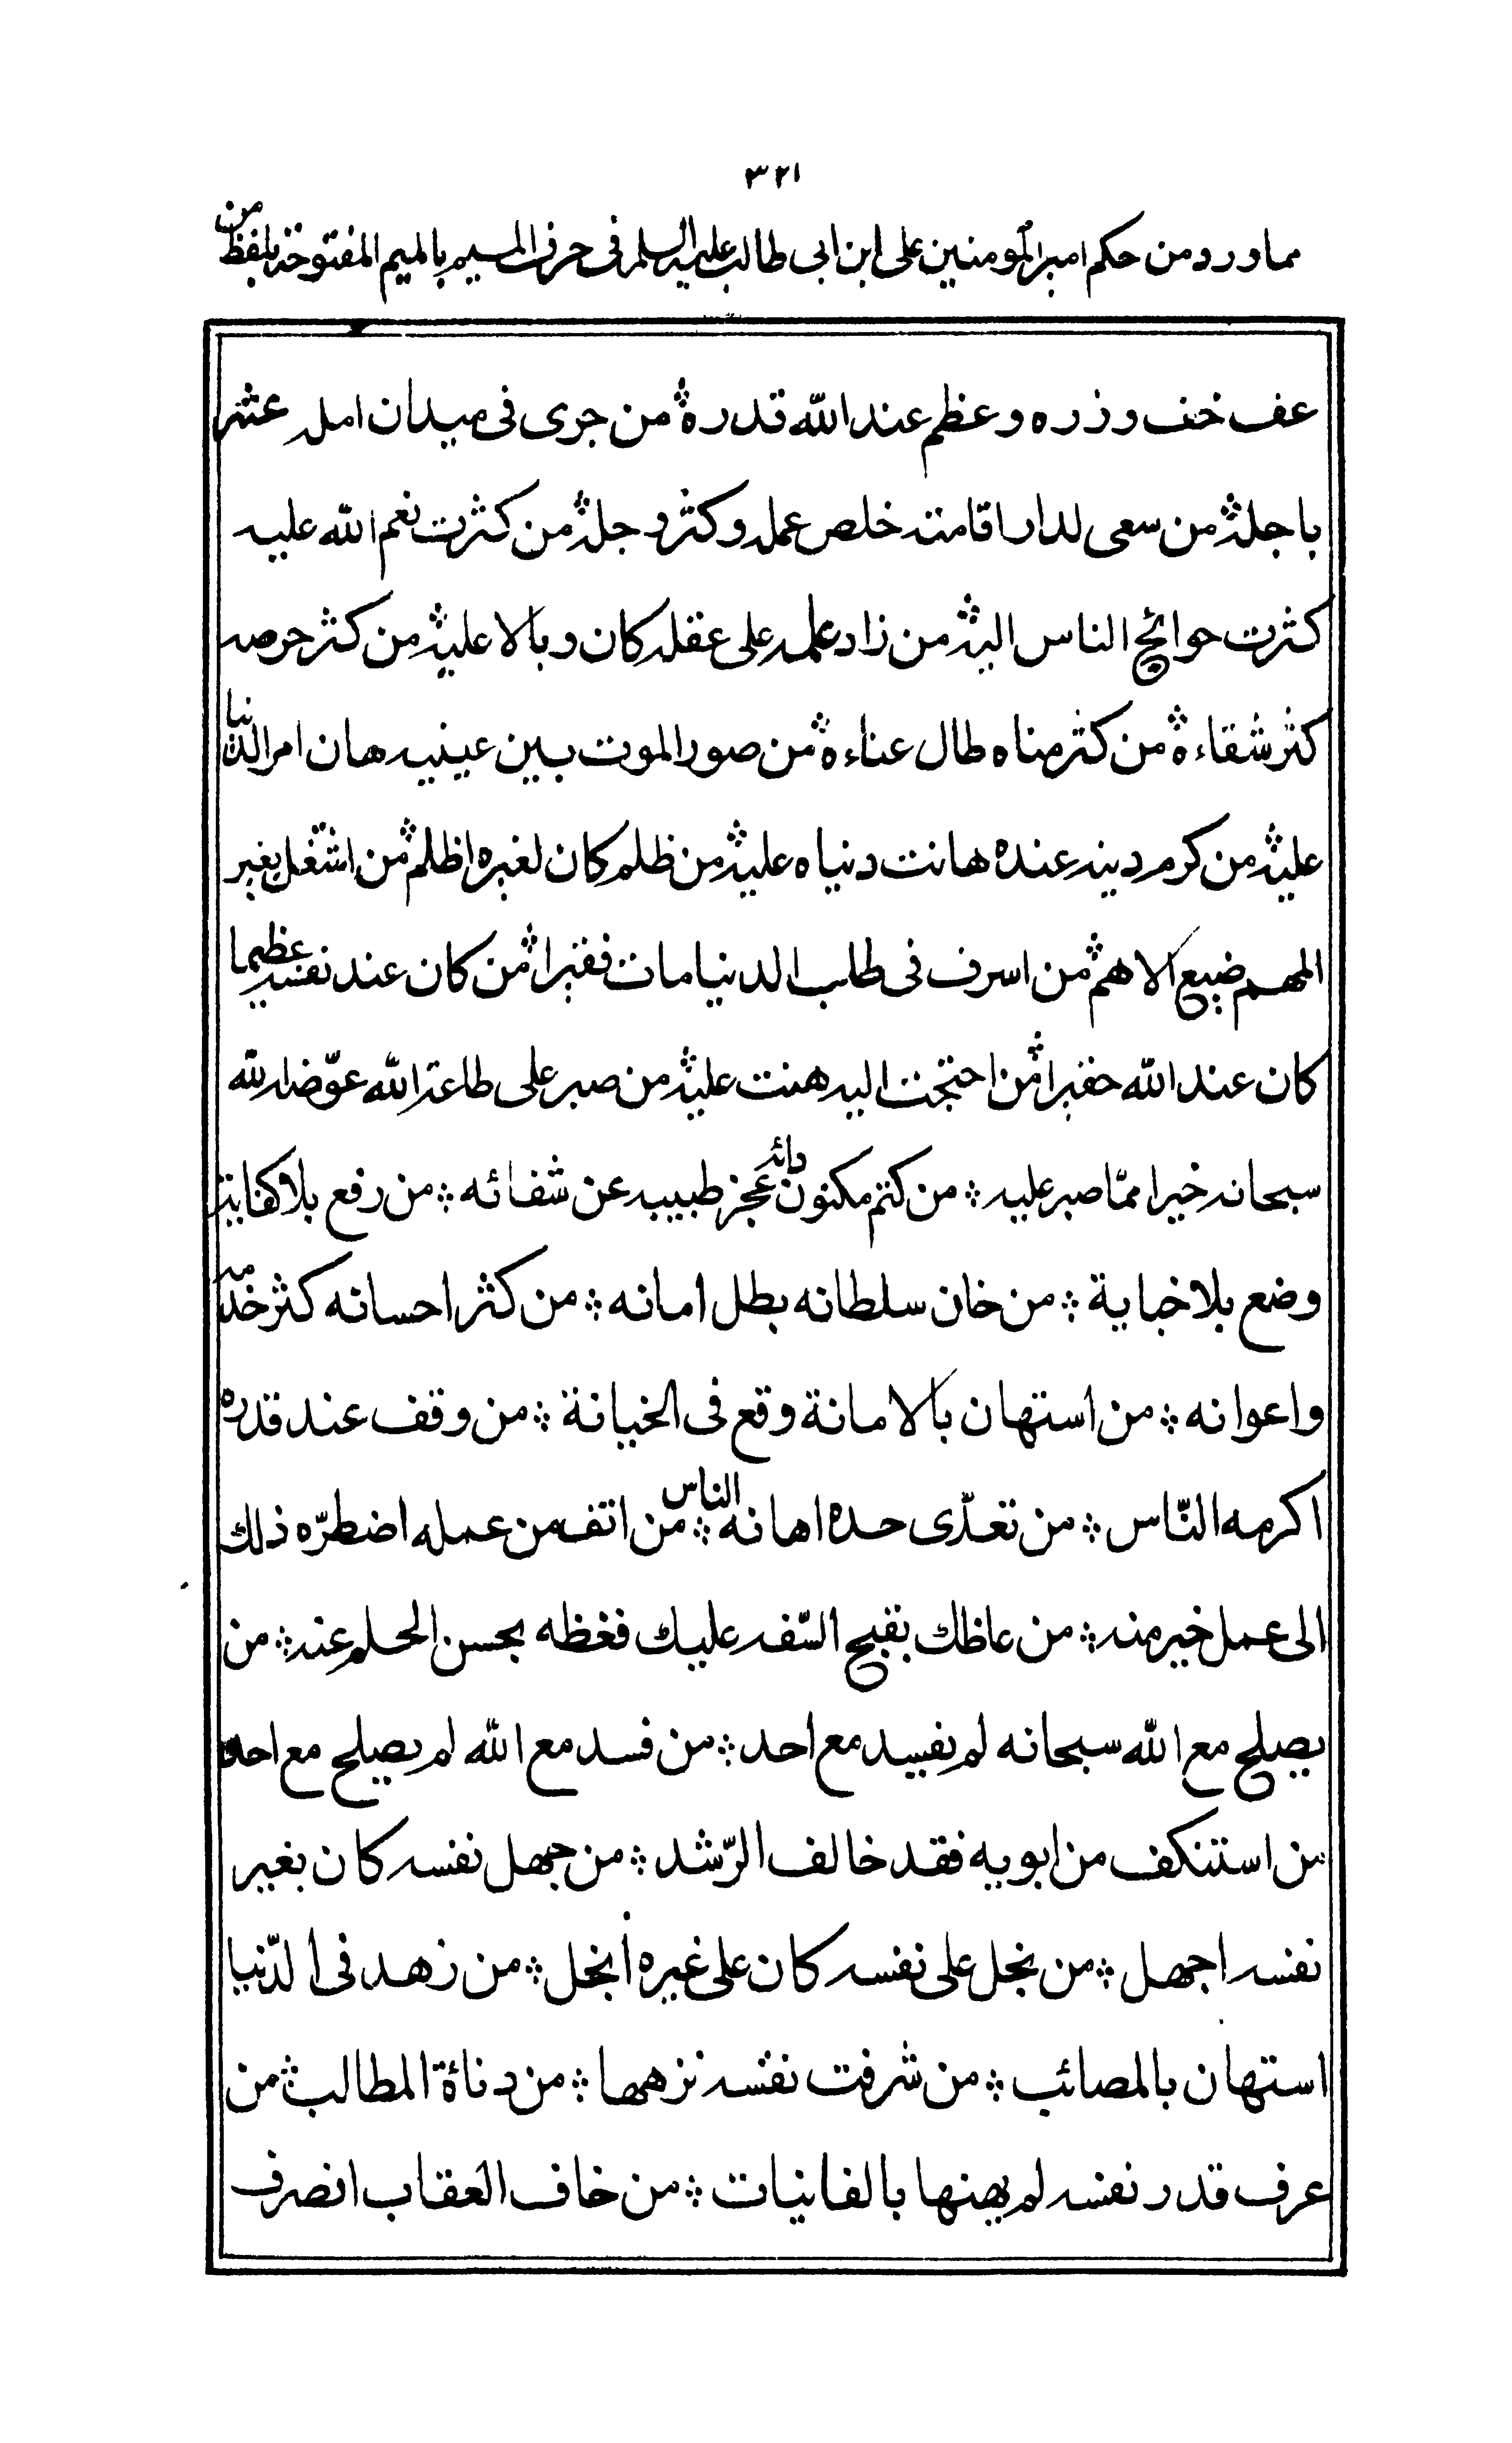 ٣٢١
مما ورد من حكم امير المومنين على ابن ابى طالب عليه السلم فى حرف الميم بالميم المفتوحة بلفظ من
عف خف وزره وعظم عند الله قدره ∴ من جرى فى ميدان امله عثر
باجله ∴ من سعى لدار اقامته خلص عمله وكثر وجله ∴ من كثرت نعم الله عليه
كثرت حوائج الناس اليه ∴ من زاد علمه على عقله كان وبالا عليه ∴ من كثر حرصه
كثر شقاءه ∴ من كثر مناه طال عناءه ∴ من صور الموت بين عينيه هان امر الدنيا
عليه ∴ من كرم دينه عنده هانت دنياه عليه ∴ من ظلم كان لغيره اظلم ∴ من اشتغل بغير
المهم ضيع الاهم ∴ من اسرف فى طلب الدنيا مات فقيرا ∴ من كان عند نفسه عظيما
كان عند الله حقيرا ∴ من احتجت اليه هنت عليه ∴ من صبر على طاعة الله عوّضه الله
سبحانه خيرا ممّا صبر عليه ∴ من كتم مكنون دائه عجز طبيبه عن شفائه ∴ من رفع بلا كفاية
وضع بلا خباية ∴ من خان سلطانه بطل امانه ∴ من كثر احسانه كثر خدمه
واعوانه ∴ من استهان بالامانة وقع فى الخيانة ∴ من وقف عند قدره
اكرمه النّاس ∴ من تعدّى حده اهانه الناس ∴ من انف من عمله اضطرّه ذلك
الى عمل خير منه ∴ من عاظك بقبح السّفه عليك فغظه بحسن الحلم عنه ∴ من
يصلح مع الله سبحانه لم يفسد مع احد ∴ من فسد مع الله لم يصلح مع احد
من استنكف من ابويه فقد خالف الرّشد ∴ من جهل نفسه كان بغير
نفسه اجهل ∴ من بخل على نفسه كان على غيره أبخل ∴ من زهد فى الدّنيا
استهان بالمصائب ∴ من شرفت نفسه نزهها ∴ من دناة المطالب ∴ من
عرف قدر نفسه لم يهنها بالفانيات ∴ من خاف العقاب انصرف